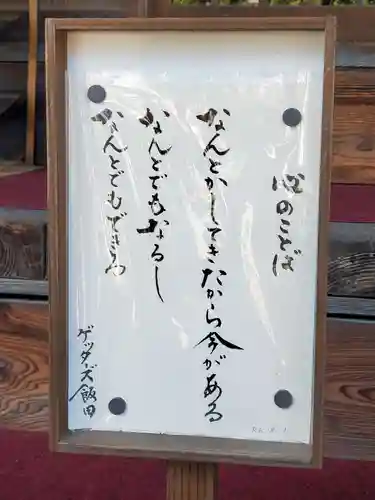 心のことば
なんとかしてきたから今がある
なんとでもなるし
なんとでもできる
ゲッターズ飯田